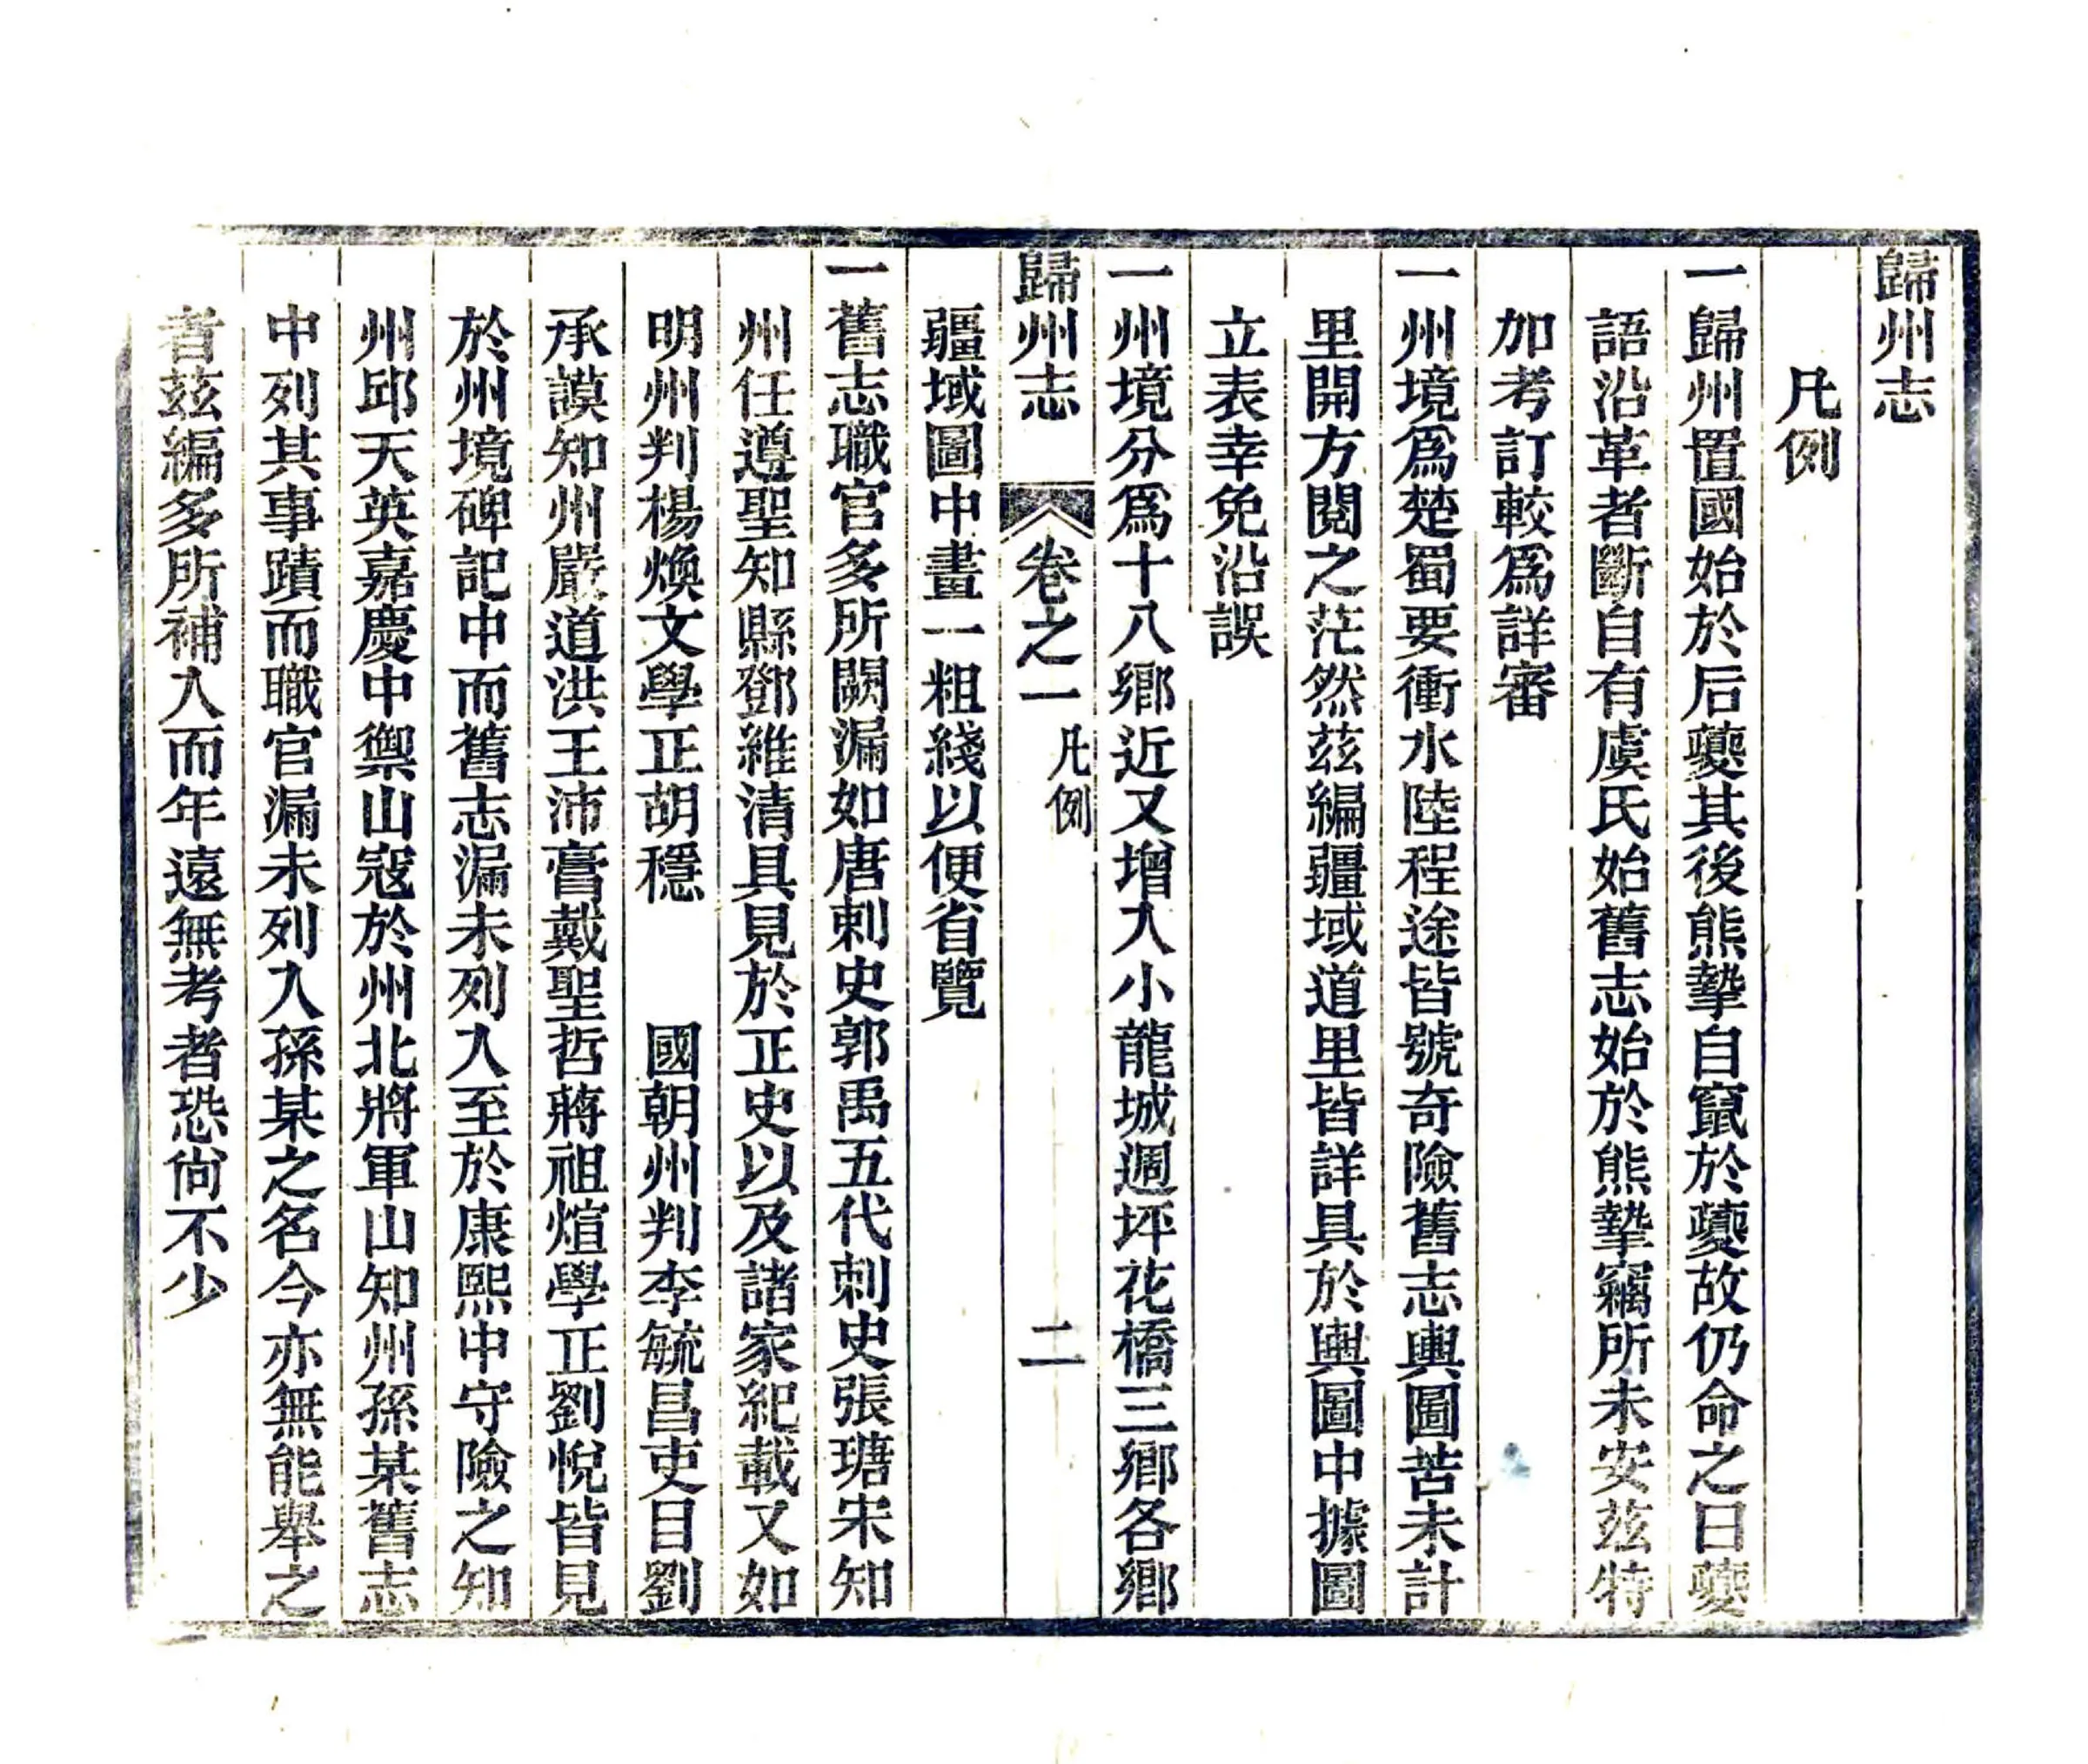 歸州志
凡例
一歸州置國始於后夔其後熊摯自竄於夔故仍命之曰夔
語沿革者斷自有虞氏始舊志始於熊摯竊所未安茲特
加考訂較爲詳審
一州境爲楚蜀要衝水陸程途皆號奇險舊志輿圖苦未計
里開方閱之茫然茲編疆域道里皆詳具於輿圖中據圖
立表幸免沿誤
一州境分爲十八鄉近又增入小龍城週坪花橋三鄉各鄉
歸州志 卷之一 凡例 二
疆域圖中畫一粗綫以便省覽
一舊志職官多所闕漏如唐刺史郭禹五代刺史張瑭宋知
州任遵聖知縣鄧維清具見於正史以及諸家紀載又如
明州判楊煥文學正胡穩 國朝州判李毓昌吏目劉
承謨知州嚴道洪王沛膏戴聖哲蔣祖煊學正劉悅皆見
於州境碑記中而舊志漏未列入至於康熙中守險之知
州邱天英嘉慶中禦山寇於州北將軍山知州孫某舊志
中列其事蹟而職官漏未列入孫某之名今亦無能舉之
者茲編多所補入而年遠無考者恐尙不少